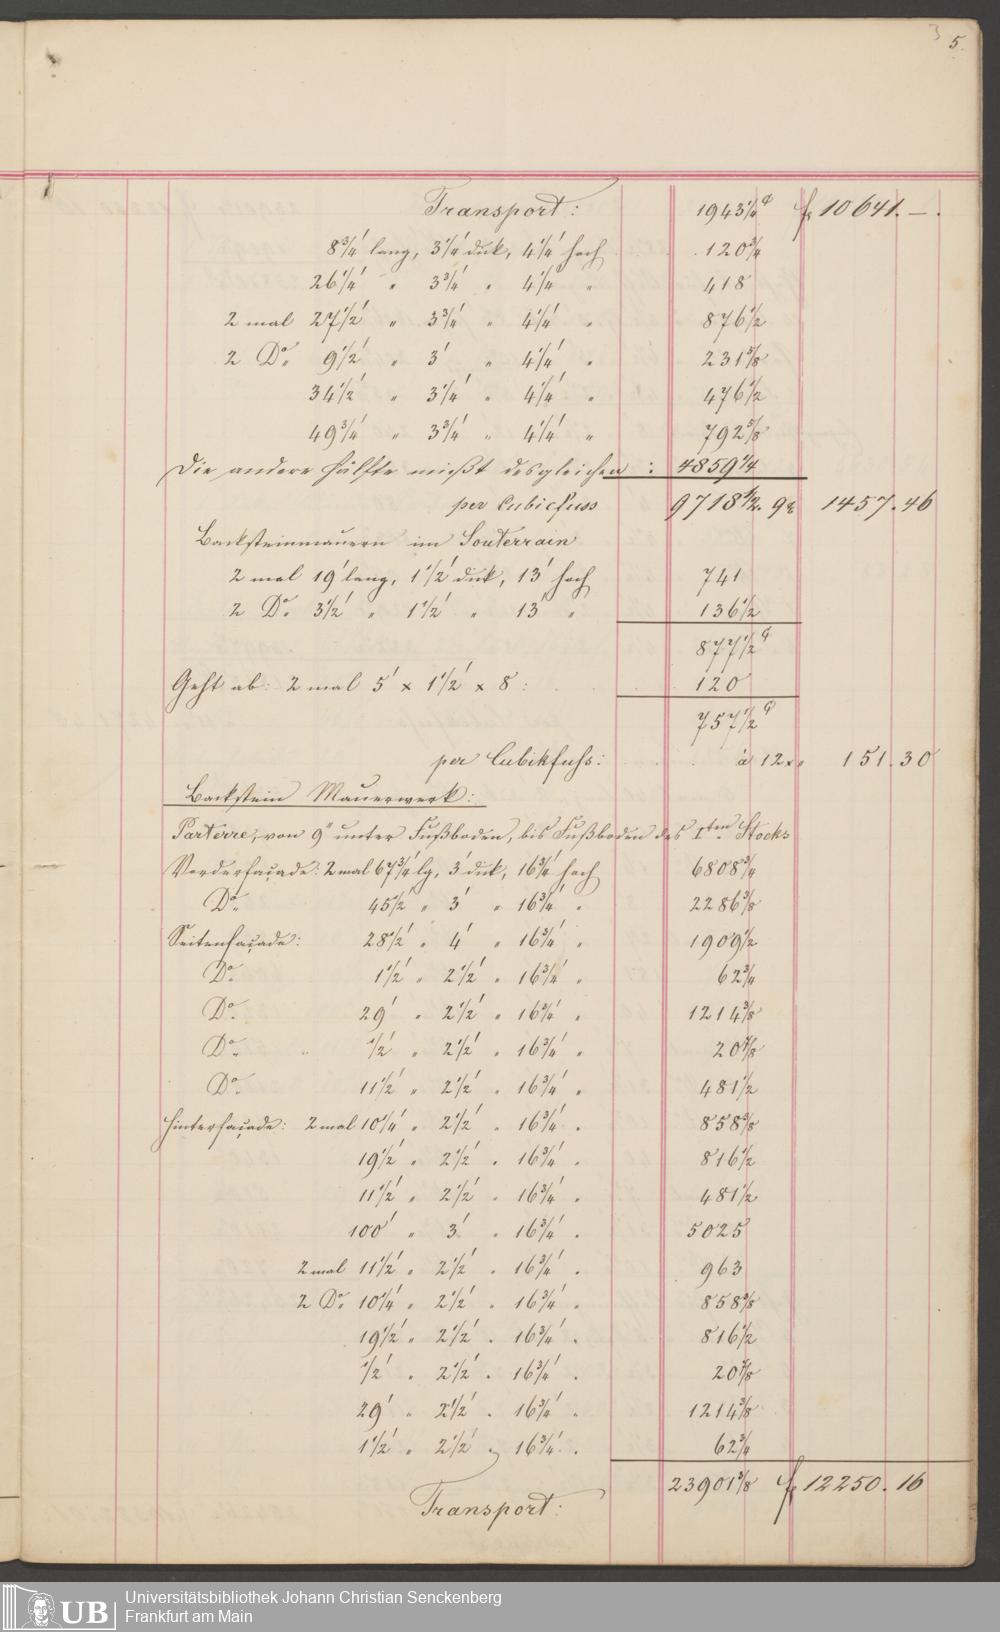 3
5.
Transport: 1943 1/4 f 10641. —.
8 3/4' lang, 3 1/4' dick, 4 1/4' hoch 120 3/4
26 1/4' " 3 3/4' " 4 1/4' " 418
2 mal 27 1/2' " 3 3/4' " 4 1/4' " 876 1/2
2 Do. 9 1/2' " 3' " 4 1/4' " 231 5/8
34 1/2' " 3 1/4' " 4 1/4' " 476 1/2
49 3/4' " 3 3/4' " 4 1/4' " 792 5/8
Die andere Hälfte mißt desgleichen : 4859 1/4
per Cubicfuss 9718 1/2. 9x 1457.46
Backsteinmauern im Souterrain
2 mal 19' lang, 1 1/2' dick, 13' hoch 741
2 Do. 3 1/2' " 1 1/2' " 13' " 136 1/2
877 1/2
Geht ab: 2 mal 5' x 1 1/2' x 8: 120
757 1/2
per Cubikfuhs: à 12x. 151.30
Backstein Mauerwerk:
Parterre, von 9" unter Fußboden, bis Fußboden des Iten Stocks
Vorderfaçade: 2 mal 67 3/4' lg, 3' dick, 16 3/4' hoch 6808 3/4
Do. 45 1/2' " 3' " 16 3/4' " 2286 3/8
Seitenfaçade: 28 1/2' " 4' " 16 3/4' " 1909 1/2
Do. 1 1/2' " 2 1/2' " 16 3/4' " 62 3/4
Do. 29' " 2 1/2' " 16 3/4' " 1214 3/8
Do. " 1/2' " 2 1/2' " 16 3/4' " 20 7/8
Do. 11 1/2' " 2 1/2' " 16 3/4' " 481 1/2
Hinterfaçade: 2 mal 10 1/4' " 2 1/2' " 16 3/4' " 858 3/8
19 1/2' " 2 1/2' " 16 3/4' " 816 1/2
11 1/2' " 2 1/2' " 16 3/4' " 481 1/2
100' " 3' " 16 3/4' " 5025
2 mal 11 1/2' " 2 1/2' " 16 3/4' " 963
2 Do. 10 1/4' " 2 1/2' " 16 3/4' " 858 3/8
19 1/2' " 2 1/2' " 16 3/4' " 816 1/2
1/2' " 2 1/2' " 16 3/4' " 20 7/8
29' " 2 1/2' " 16 3/4' " 1214 3/8
1 1/2' " 2 1/2' " 16 3/4' " 62 3/4
Transport: 23901 3/8 f 12250.16
UB
Universitätsbibliothek Johann Christian Senckenberg
Frankfurt am Main